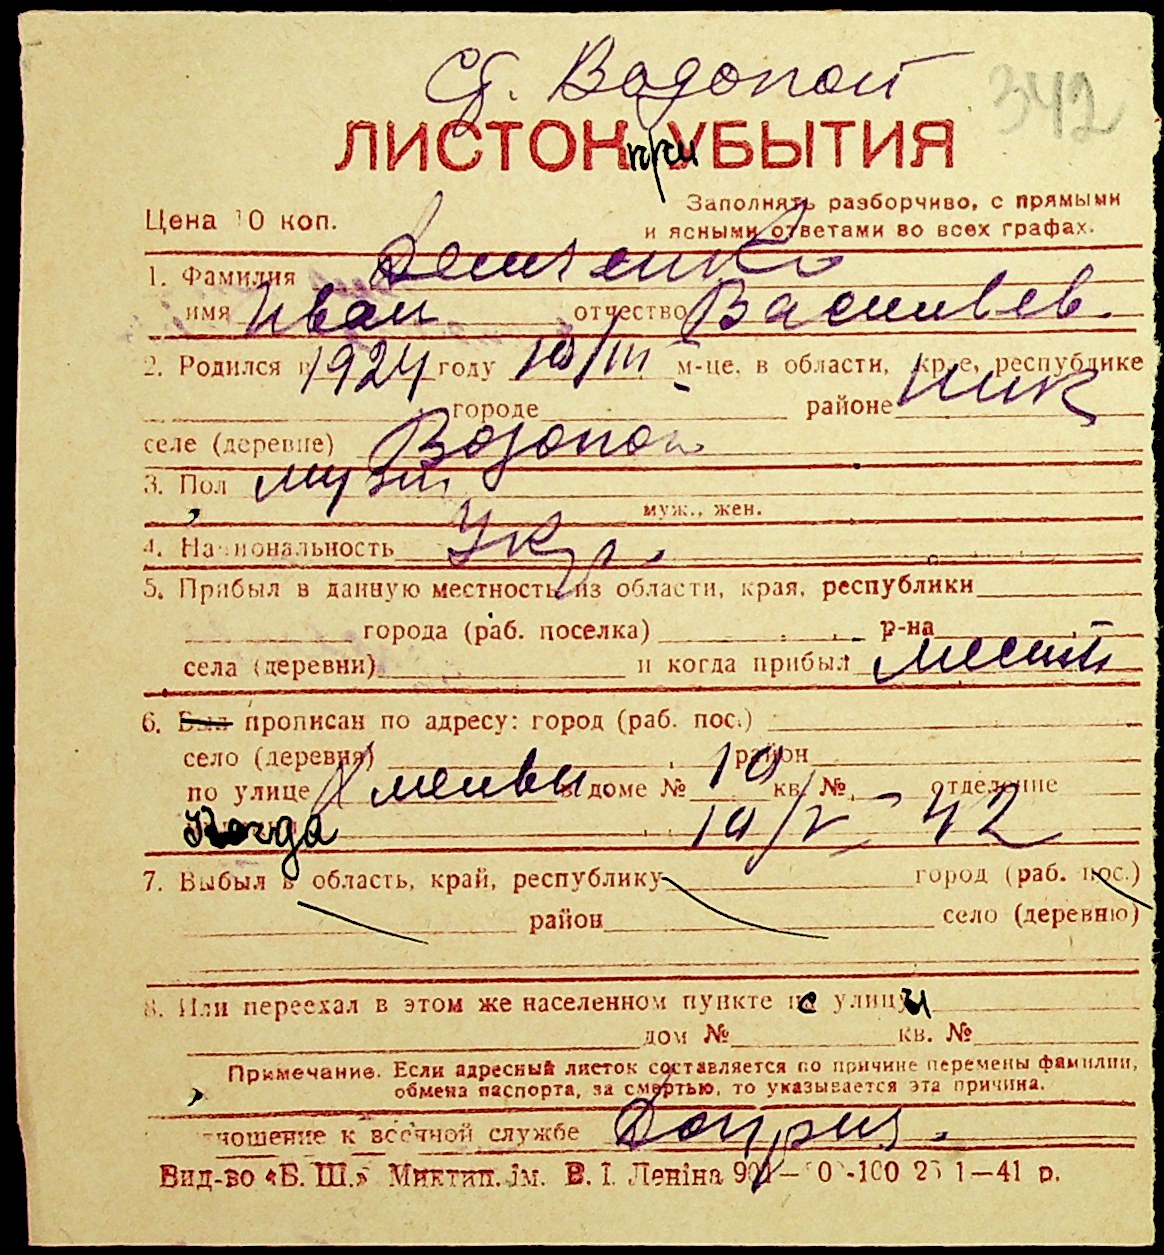 Ст. Водопой
342
ЛИСТОК при УБЫТИЯ
Цена 10 коп.
Заполнять разборчиво, с прямыми
и ясными ответами во всех графах.
1. Фамилия Демченко
имя Иван отчество Васильев.
2. Родился в 1924 году 10/III м-це, в области, крае, республике
городе районе Ник
селе (деревне) Водопой
3. Пол муж.
муж., жен.
4. Национальность Укр.
5. Прибыл в данную местность из области, края, республики
города (раб. поселка) р-на
села (деревни) и когда прибыл местн
6. Был прописан по адресу: город (раб. пос.)
село (деревня) район
по улице в доме № 10 кв. № отделение
Когда 19/V – 42
7. Выбыл в область, край, республику город (раб. пос.)
район село (деревню)
8. Или переехал в этом же населенном пункте с улицы
дом № кв. №
Примечание. Если адресный листок составляется по причине перемены фамилии,
обмена паспорта, за смертью, то указывается эта причина.
отношение к военной службе Доприз.
Вид-во «Б. Ш.» Миктип. ім. В. І. Леніна 1—41 р.